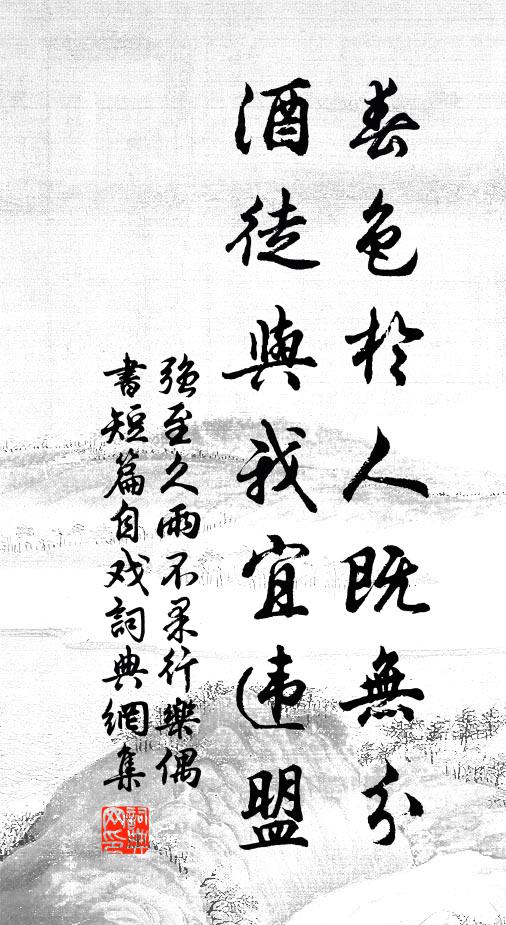 春色於人既無分
酒徒與我宜违盟
强至久雨不果行樂偶
書短篇自戏詞典網集